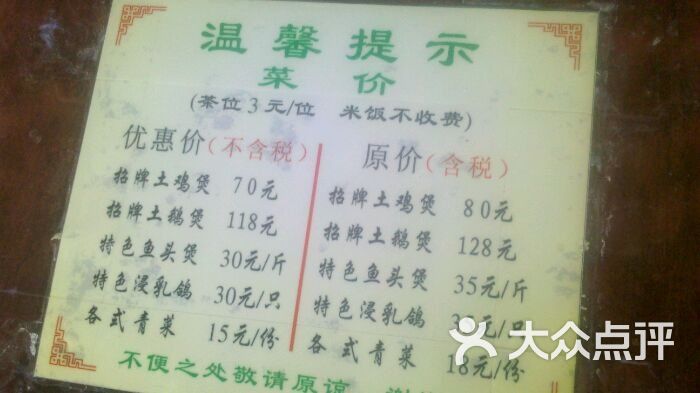 温馨提示
菜价
(茶位3元/位 米饭不收费)
优惠价(不含税)
招牌土鸡煲 70元
招牌土鹅煲 118元
特色鱼头煲 30元/斤
特色浸乳鸽 30元/只
各式青菜 15元/份
原价(含税)
招牌土鸡煲 80元
招牌土鹅煲 128元
特色鱼头煲 35元/斤
特色浸乳鸽
各式青菜 18元/份
不便之处敬请原谅
大众点评